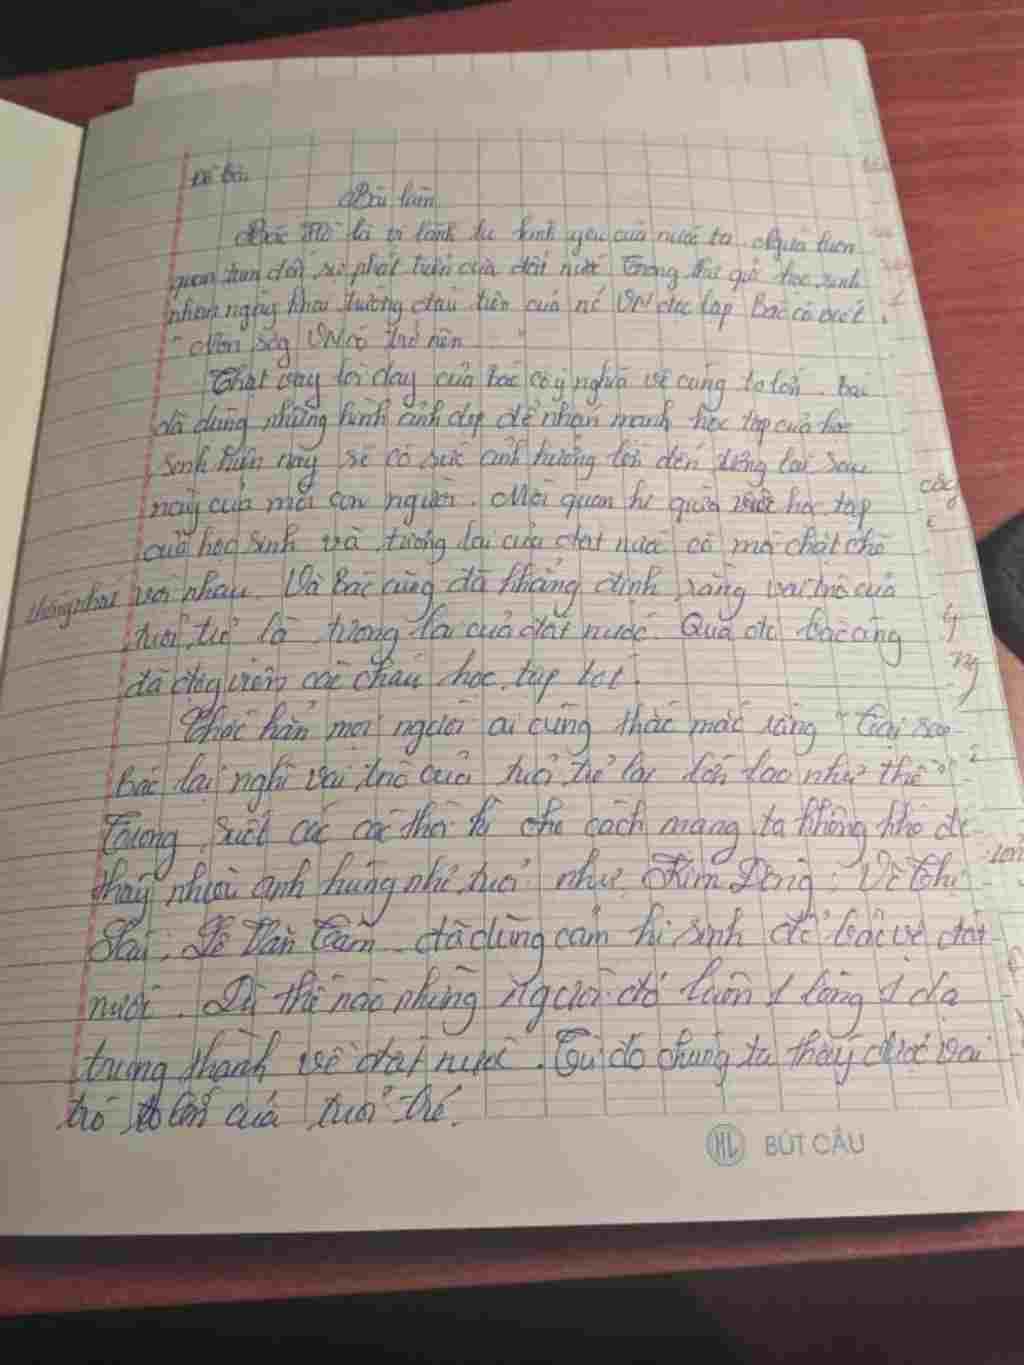 Đề bài
Bài làm
Bác Hồ là vị lãnh tụ kính yêu của nước ta. luôn
quan tâm đến sự phát triển của đất nước. Trong thư gửi học sinh
nhân ngày khai trường đầu tiên của nc VN độc lập Bác có viết
" Non sông VN có trở nên "
Thật vậy lời dạy của bác có ý nghĩa vô cùng to lớn. bác
đã dùng những hình ảnh đẹp để nhấn mạnh học tập của học
sinh hiện nay sẽ có sức ảnh hưởng lớn đến tương lai sau
này của mỗi con người. Mối quan hệ giữa học tập
của học sinh và tương lai của đất nước có mố chặt chẽ
với nhau. Và Bác cũng đã khẳng định rằng vai trò của
tuổi trẻ là tương lai của đất nước. Qua đó bác cũng
đã động viên các cháu học tập tốt.
Chắc hẳn mọi người ai cũng thắc mắc rằng "Tại sao
Bác lại nghĩ vai trò của tuổi trẻ lại lớn lao như thế"
Trong suốt các các thời kì cách mạng ta không khó để
thấy anh hùng nhỏ tuổi như Kim Đồng; Võ Thị
Sáu; Lê Văn Tám đã dũng cảm hi sinh để bảo vệ đất
nước. Dù thế nào những người đó luôn 1 lòng 1 dạ
trung thành với đất nước. Từ đó chúng ta thấy được vai
trò to lớn của tuổi trẻ.
HL BÚT CÂU